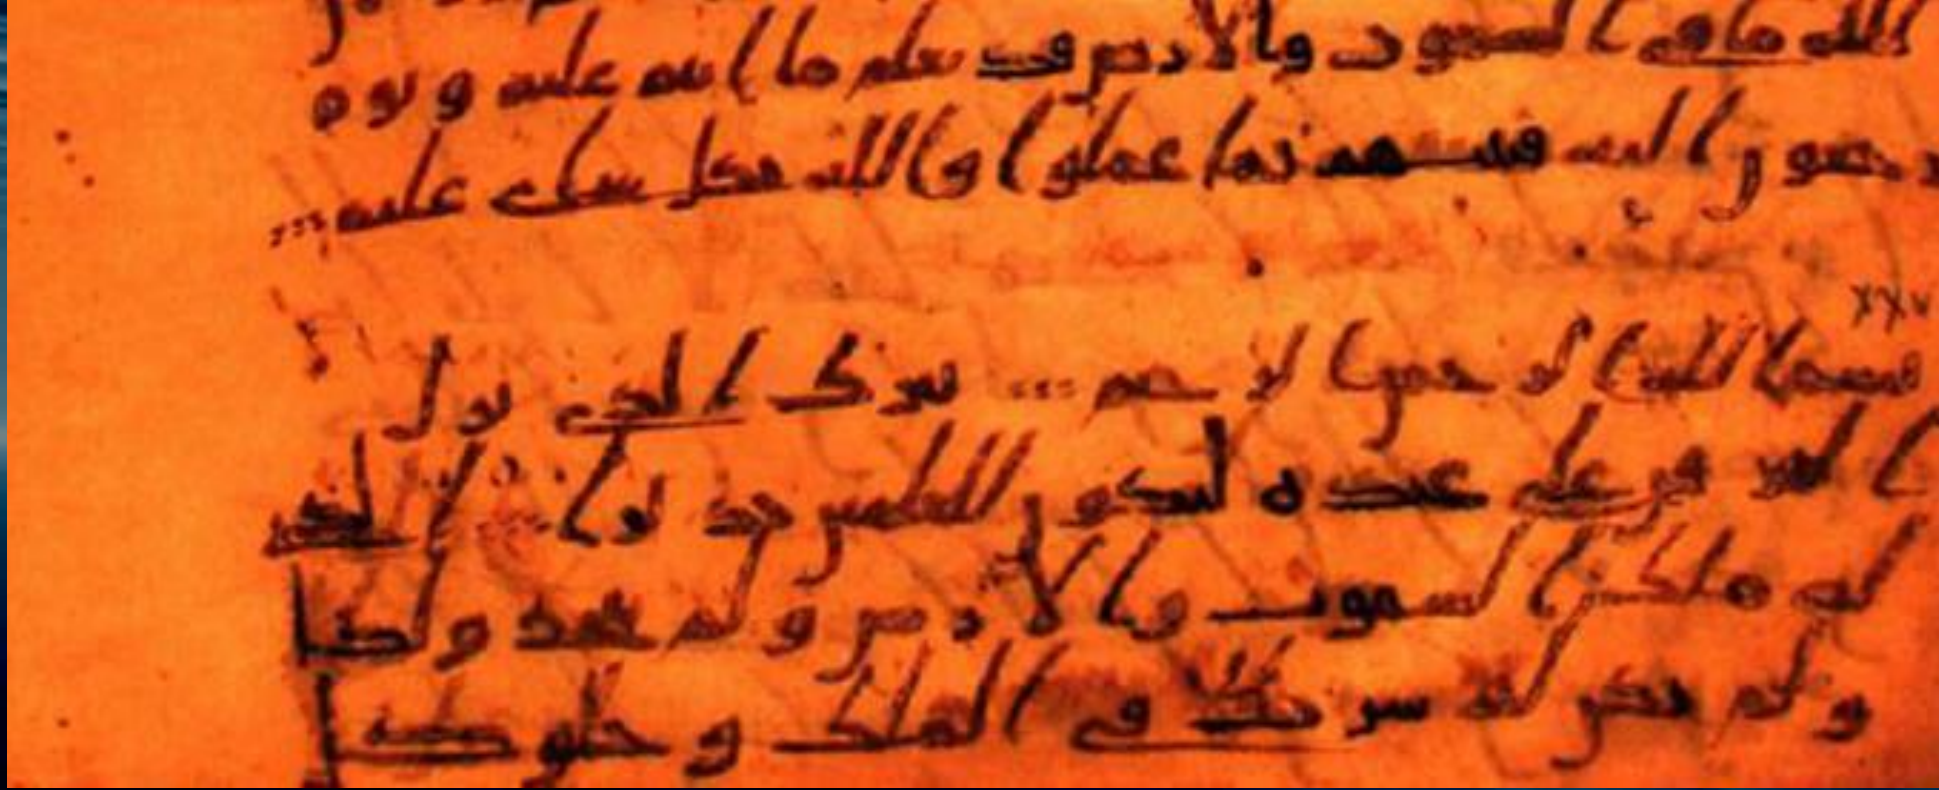 لله ما في السموت والارض قد يعلم ما انتم عليه ويوم
يرجعون اليه فينبئهم بما عملوا والله بكل شاى عليم
XXV
بسم الله الرحمن الرحيم تبرك الذي نزل
الفرقن على عبده ليكون للعلمين نذيرا الذي
له ملك السموت والارض ولم يتخذ ولدا
ولم يكن له شريك في الملك وخلق كل